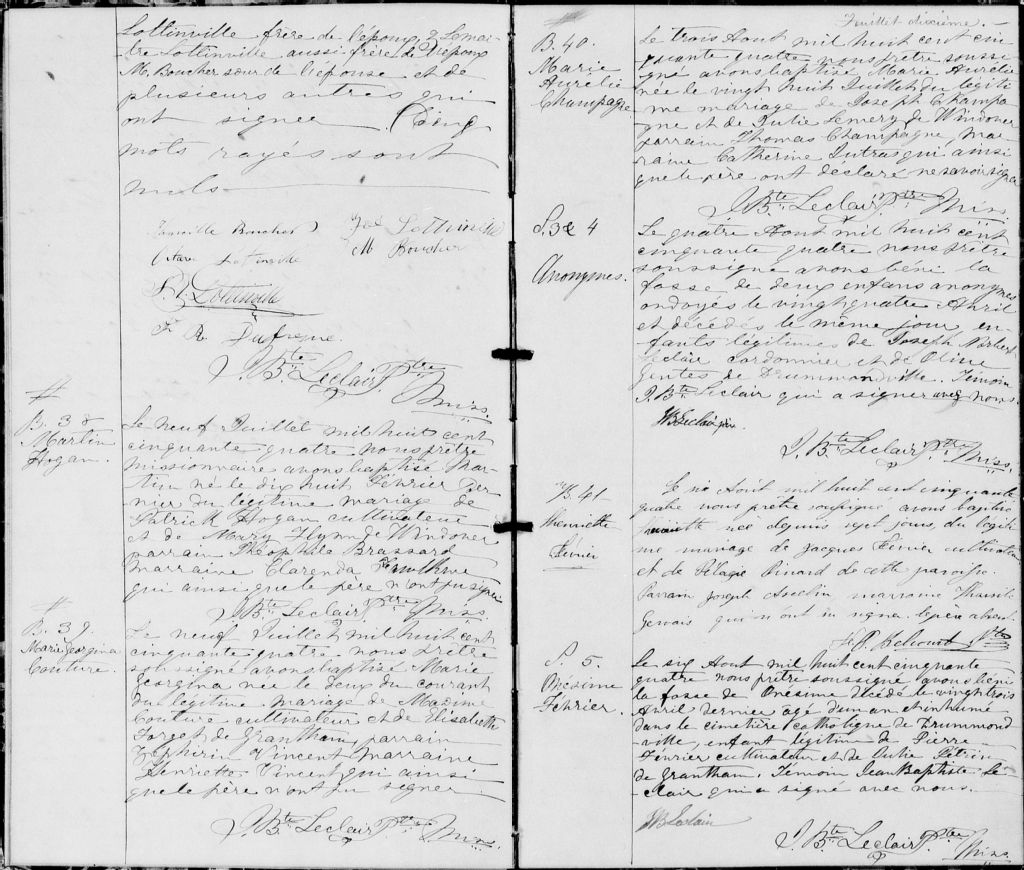 Lottinville frère de l'époux, & Lemai-
tre Lottinville aussi frère de l'époux
M. Boucher sœur de l'épouse et de
plusieurs autres qui
ont signée. (Cinq
mots rayés sont
nuls.
Boucher Jos Lottinville
Lotinville M Boucher
Lottinville
F. R. Dufresne.
J. Bte Leclair Ptre
Miss.
#
B. 38
Martin
Hogan.
Le neuf Juillet mil huit cent
cinquante quatre nous prêtre
missionnaire avons baptisé Mar-
tin né le dix huit Février der
nier du légitime mariage de
Patrick Hogan cultivateur
et de Mary Flynn de Windover
parrain Théophile Brassard
marraine Clarenda
qui ainsi que le père n'ont pu signer
J. Bte Leclair Ptre Miss.
#
B. 39.
Marie Georgina
Couture.
Le neuf Juillet mil huit cent
cinquante quatre nous prêtre
soussigné avons baptisé Marie
Georgina née le deux du courant
du légitime mariage de Maxime
Couture cultivateur et de Elisabeth
Forget de Grantham, parrain
Zéphirin Vincent marraine
Henriette Vincent qui ainsi
que le père n'ont pu signer
J. Bte Leclair Ptre Miss.
Feuillet dixième.
B. 40.
Marie
Aurélie
Champagne
Le trois Aout mil huit cent cin
quante quatre nous prêtre soussi
gné avons baptisé Marie Aurélie
née le vingt huit Juillet du légiti
me mariage de Joseph Champa
gne et de Julie Lemery de Windover
parrain Thomas Champagne, mar
raine Catherine Dutras qui ainsi
que le père ont déclaré ne savoir signer
J. Bte Leclair Ptre Miss.
S. 3 & 4
Anonymes.
Le quatre Aout mil huit cent
cinquante quatre nous prêtre
soussigné avons béni la
fosse de deux enfans anonymes
ondoyés le vingt quatre Avril
et décédés le même jour en-
fants légitimes de Joseph Norbert
Leclair cordonnier et de Olive
Gentes de Drummondville. Témoin
J. Bte Leclair qui a signer avec nous.
JB Leclair
J. Bte Leclair Ptre Miss.
B. 41
Henriette
Février
Le six Août mil huit cent cinquante
quatre nous prêtre soussigné avons baptisé
née depuis sept jours, du légiti
me mariage de Jacques Février cultivateur
et de Pélagie Pinard de cette paroisse.
Parrain Joseph Asselin marraine
Gervais qui n'ont su signer. le père absent.
Belcourt Ptre
S. 5.
Onésime
Février.
Le six Aout mil huit cent cinquante
quatre nous prêtre soussigné avons béni
la fosse de Onésime décédé le vingt trois
Avril dernier agé d'un an et inhumé
dans le cimetière catholique de Drummond
ville, enfant légitim de Pierre
Février cultivateur et de Julie Pétrin
de Grantham. Témoin Jean Baptiste Le-
clair qui a signé avec nous.
JB Leclair
J. Bte Leclair Ptre
Miss